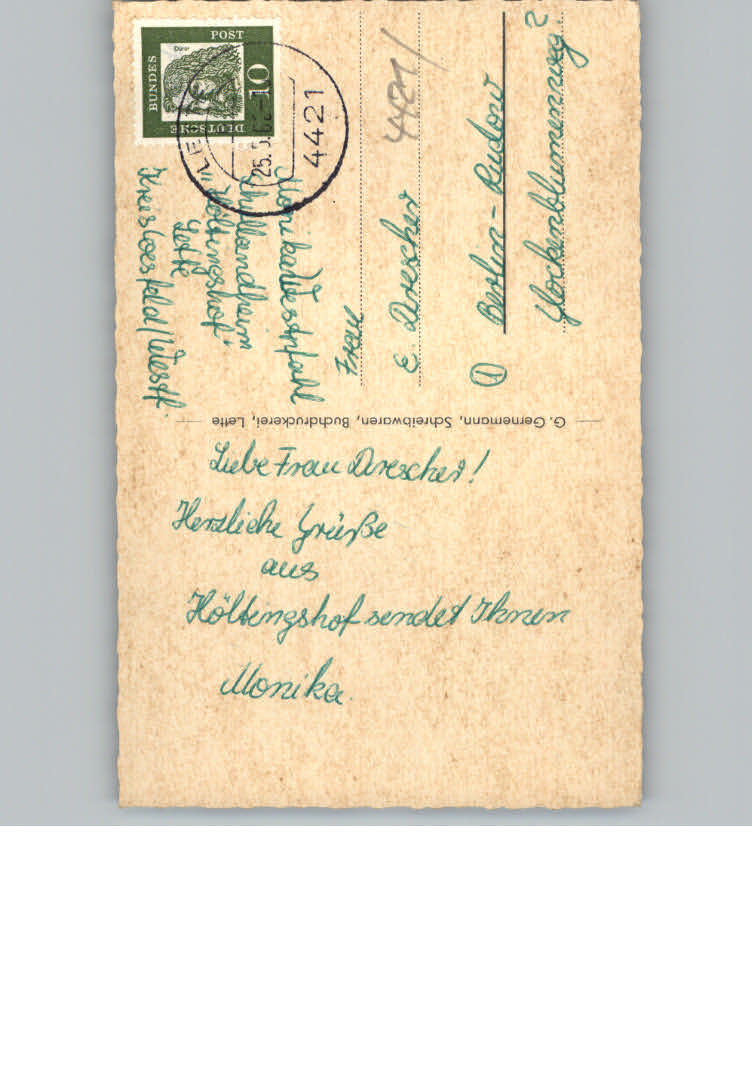 DEUTSCHE
BUNDES
POST
10
Dürer
25.5.6
4421
4421
Monika Westphal
Schullandheim
"Höltingshof"
Lette
Kreis Coesfeld / Westf.
Frau
E. Drescher
① Berlin-Rudow
Glockenblumenweg 2
G. Gernemann, Schreibwaren, Buchdruckerei, Lette
Liebe Frau Drescher!
Herzliche Grüße
aus
Höltengshof sendet Ihnen
Monika.